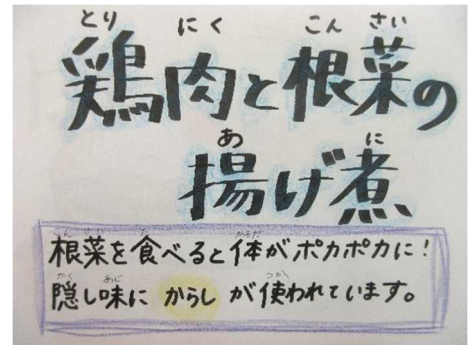 とり にく こん さい
鶏肉と根菜の
あ に
揚げ煮
こん さい た からだ
根菜を食べると体がポカポカに！
かく あじ つか
隠し味に からし が使われています。